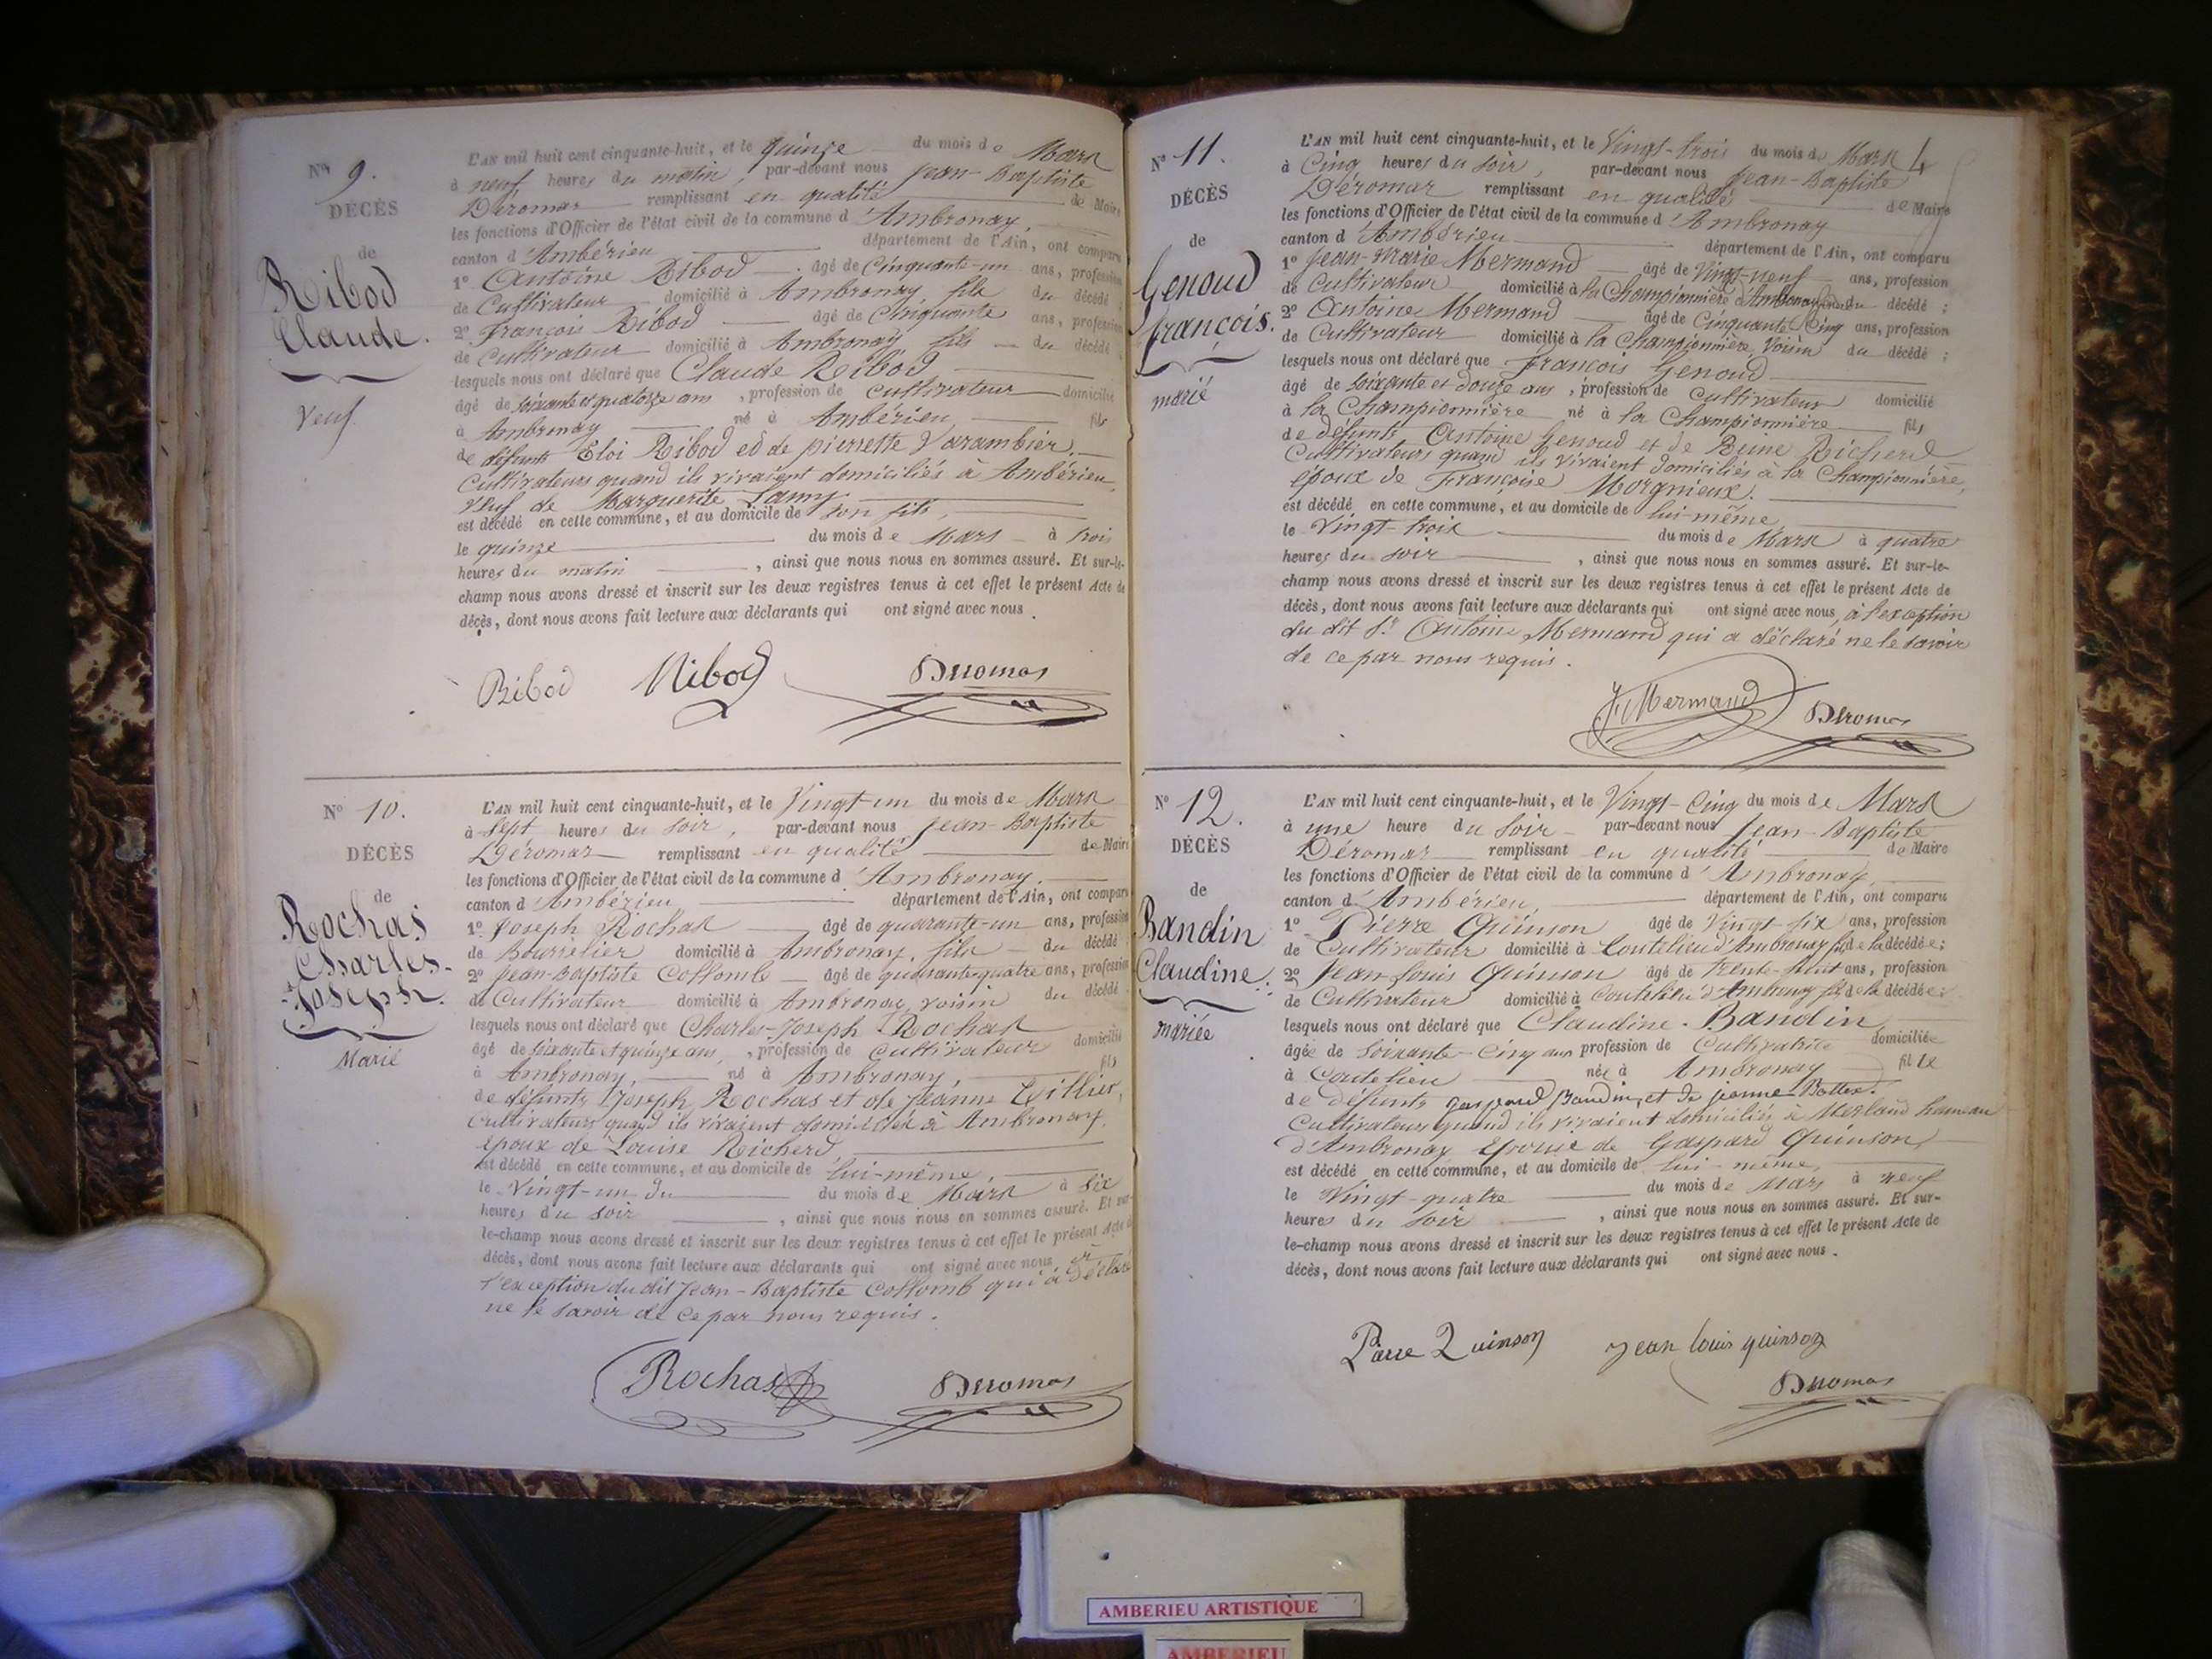 N° 9.
DÉCÈS
de
Ribod
Claude.
Veuf
L'AN mil huit cent cinquante-huit, et le quinze du mois de Mars
à neuf heures du matin, par-devant nous Jean-Baptiste
Déromas remplissant en qualité de Maire
les fonctions d'Officier de l'état civil de la commune d'Ambronay,
canton d'Ambérieu département de l'Ain, ont comparu
1° Antoine Ribod âgé de Cinquante-un ans, profession
de Cultivateur domicilié à Ambronay, fils du décédé;
2° François Ribod âgé de Cinquante ans, profession
de Cultivateur domicilié à Ambronay fils du décédé;
lesquels nous ont déclaré que Claude Ribod
âgé de soixante et quatorze ans, profession de cultivateur domicilié
à Ambronay né à Ambérieu fils
de défunts Eloi Ribod et de pierrette Varambier.
Cultivateurs quand ils vivaient domiciliés à Ambérieu,
Veuf de Marguerite Lamy
est décédé en cette commune, et au domicile de son fils,
le quinze du mois de Mars à trois
heures du matin, ainsi que nous nous en sommes assuré. Et sur-le-
champ nous avons dressé et inscrit sur les deux registres tenus à cet effet le présent Acte de
décès, dont nous avons fait lecture aux déclarants qui ont signé avec nous.
Ribod Ribod Deromas
N° 10.
DÉCÈS
de
Rochas
Charles-
Joseph.
Marié
L'AN mil huit cent cinquante-huit, et le Vingt un du mois de Mars
à sept heures du soir, par-devant nous Jean-Baptiste
Déromas remplissant en qualité de Maire
les fonctions d'Officier de l'état civil de la commune d'Ambronay.
canton d'Ambérieu département de l'Ain, ont comparu
1° Joseph Rochas âgé de quarante-un ans, profession
de Bourrelier domicilié à Ambronay, fils du décédé
2° Jean-Baptiste Collomb âgé de quarante-quatre ans, profession
de Cultivateur domicilié à Ambronay, voisin du décédé
lesquels nous ont déclaré que Charles-Joseph Rochas
âgé de soixante et quinze ans, profession de cultivateur domicilié
à Ambronay, né à Ambronay, fils
de défunts Joseph Rochas et de Jeanne
Cultivateurs quand ils vivaient domiciliés à Ambronay,
époux de Louise Richerd
est décédé en cette commune, et au domicile de lui-même,
le Vingt-un du du mois de Mars à six
heures du soir, ainsi que nous nous en sommes assuré. Et sur-
le-champ nous avons dressé et inscrit sur les deux registres tenus à cet effet le présent Acte de
décès, dont nous avons fait lecture aux déclarants qui ont signé avec nous à
l'exception du dit Jean-Baptiste Collomb qui a déclaré
ne le savoir de ce par nous requis.
Rochas Deromas
4
N° 11.
DÉCÈS
de
Genoud
françois.
marié
L'AN mil huit cent cinquante-huit, et le Vingt-trois du mois de Mars
à Cinq heures du soir, par-devant nous Jean-Baptiste
Déromas remplissant en qualité de Maire
les fonctions d'Officier de l'état civil de la commune d'Ambronay
canton d'Ambérieu département de l'Ain, ont comparu
1° Jean-Marie Mermand âgé de Vingt-neuf ans, profession
de Cultivateur domicilié à la Championnière d'Ambronay, du décédé;
2° Antoine Mermand âgé de Cinquante Cinq ans, profession
de Cultivateur domicilié à la Championnière, Voisin du décédé;
lesquels nous ont déclaré que François Genoud
âgé de soixante et douze ans, profession de Cultivateur domicilié
à la Championnière né à la Championnière fils
de défunts Antoine Genoud et de Reine Richerd
Cultivateurs quand ils vivaient domiciliés à la Championnière,
époux de Françoise Morgnieux.
est décédé en cette commune, et au domicile de lui-même,
le Vingt-trois du mois de Mars à quatre
heures du soir, ainsi que nous nous en sommes assuré. Et sur-le-
champ nous avons dressé et inscrit sur les deux registres tenus à cet effet le présent Acte de
décès, dont nous avons fait lecture aux déclarants qui ont signé avec nous, à l'exception
du dit Sr Antoine Mermand qui a déclaré ne le savoir
de ce par nous requis.
Mermand Deromas
N° 12.
DÉCÈS
de
Bandin
Claudine.
mariée
L'AN mil huit cent cinquante-huit, et le Vingt-Cinq du mois de Mars
à une heure du soir par-devant nous Jean-Baptiste
Déromas remplissant en qualité de Maire
les fonctions d'Officier de l'état civil de la commune d'Ambronay
canton d'Ambérieu, département de l'Ain, ont comparu
1° Pierre Quinson âgé de Vingt six ans, profession
de Cultivateur domicilié à Coutelieu d'Ambronay fils de la décédée;
2° Jean-Louis Quinson âgé de trente-huit ans, profession
de Cultivateur domicilié à Coutelieu d'Ambronay fils de la décédée;
lesquels nous ont déclaré que Claudine Bandin
âgée de soixante-Cinq ans profession de Cultivatrice domiciliée
à Coutelieu née à Ambronay fille
de défunts gaspard Bandin, et de jeanne Bottex.
Cultivateurs quand ils vivaient domiciliés à Merland hameau
d'Ambronay Epouse de Gaspard Quinson,
est décédé en cette commune, et au domicile de lui-même,
le Vingt-quatre du mois de Mars à neuf
heures du soir, ainsi que nous nous en sommes assuré. Et sur-
le-champ nous avons dressé et inscrit sur les deux registres tenus à cet effet le présent Acte de
décès, dont nous avons fait lecture aux déclarants qui ont signé avec nous.
Pierre Quinson Jean louis quinson
Deromas
AMBERIEU ARTISTIQUE
AMBERIEU